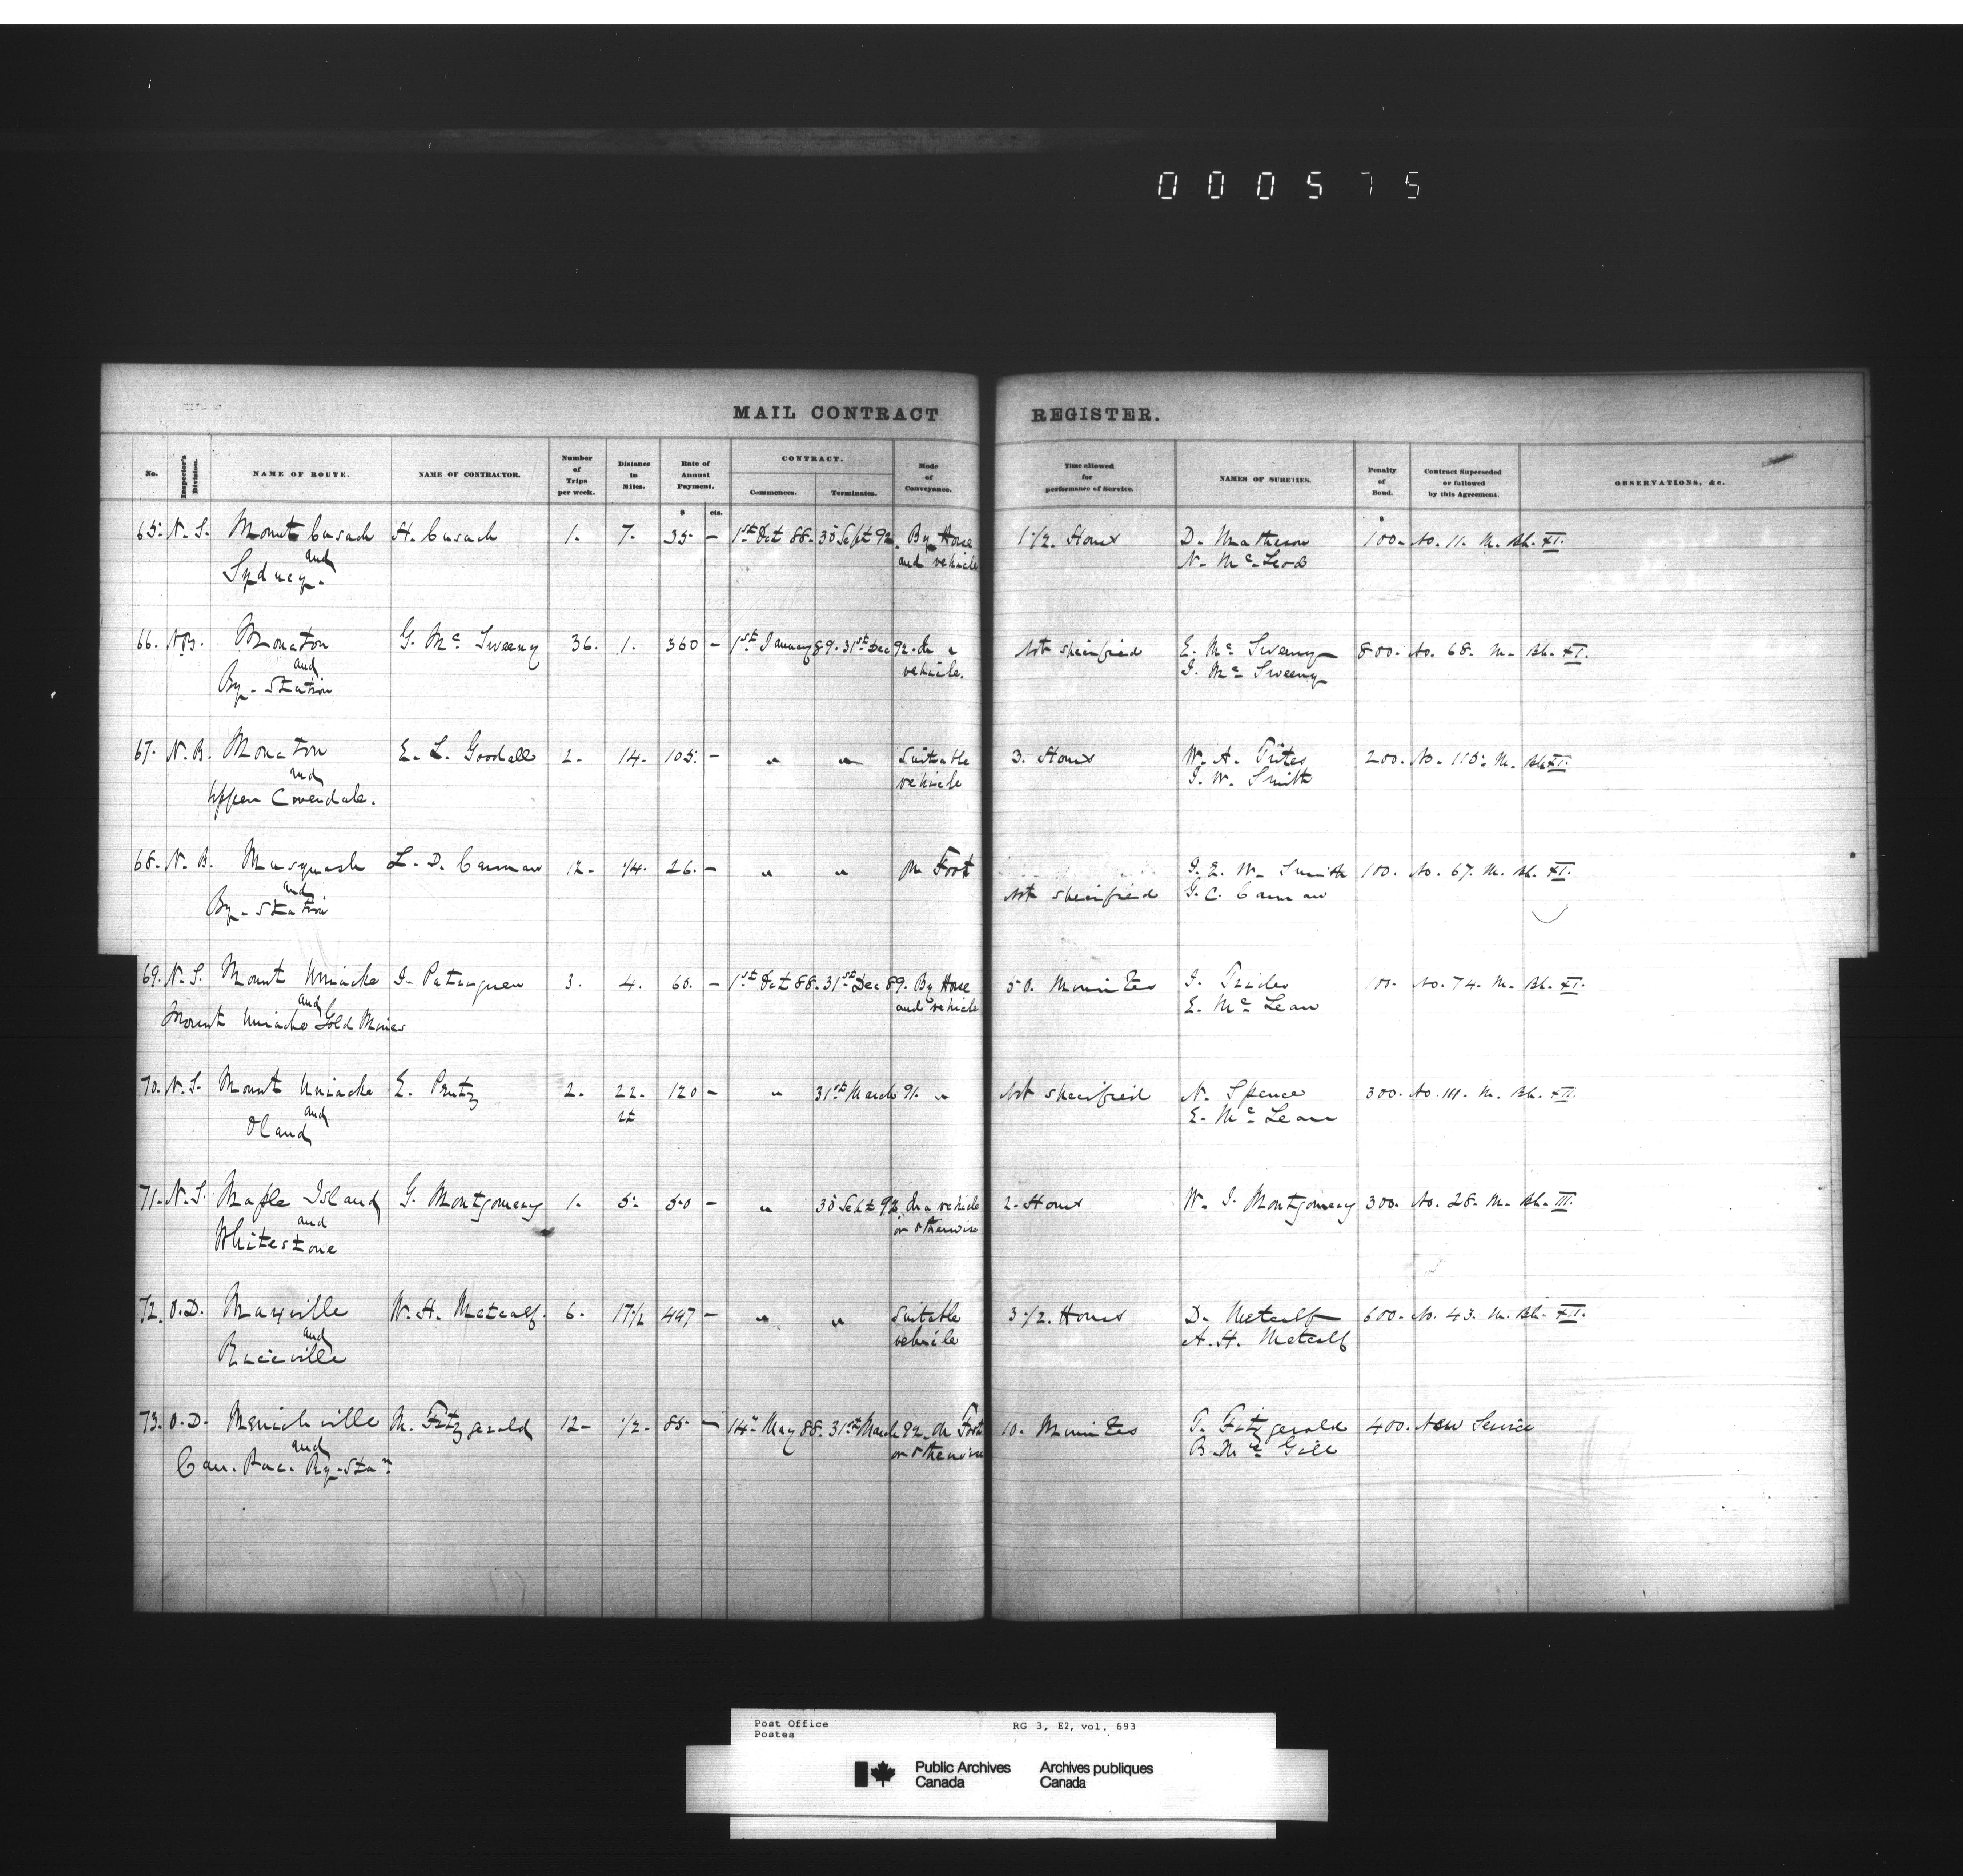 000575
MAIL CONTRACT REGISTER.
No. Inspector's Division. NAME OF ROUTE. NAME OF CONTRACTOR. Number of Trips per week. Distance in Miles. Rate of Annual Payment. CONTRACT. Commences. Terminates. Mode of Conveyance. Time allowed for performance of Service. NAMES OF SURETIES. Penalty of Bond. Contract Superseded or followed by this Agreement. OBSERVATIONS, &c.
$ cts. $
65. N.S. Mount Cusack H. Cusack 1. 7. 35. – 1st Oct 88. 30 Sept 92. By Horse 1 1/2. Hours D. Matheson 100. No. 11. M. Bk. XI.
and and vehicle N. McLeod
Sydney.
66. N.B. Moncton G. McSweeny 36. 1. 360 – 1st January 89. 31st Dec 92. In a Not specified E. McSweeny 800. No. 68. M. Bk. XI.
and vehicle. J. McSweeny
Ry. Station
67. N.B. Moncton E. L. Goodall 2. 14. 105. – " " Suitable 3. Hours W. A. Trites 200. No. 115. M. Bk. XI.
and vehicle J. W. Smith
Upper Coverdale.
68. N.B. Musquash L. D. Carman 12. 1/4. 26. – " " On Foot J. E. W. Smith 100. No. 67. M. Bk. XI.
and Not specified G. C. Carman
Ry. Station
69. N.S. Mount Uniacke J. Paturquen 3. 4. 60. – 1st Oct 88. 31st Dec 89. By Horse 50. Minutes J. 100. No. 74. M. Bk. XI.
and and vehicle E. McLean
Mount Uniacke Gold Mines
70. N.S. Mount Uniacke E. Pentz 2. 22. 120 – " 31st March 91. " Not specified N. Spence 300. No. 111. M. Bk. XII.
and E. McLean
Oland
71. N.S. Maple Island G. Montgomery 1. 5. 50 – " 30 Sept 92. In a vehicle 2. Hours W. J. Montgomery 300. No. 28. M. Bk. III.
and or otherwise
Whitestone
72. O.D. Maxville W. H. Metcalf. 6. 17 1/2 447 – " " Suitable 3 1/2. Hours D. Metcalf 600. No. 43. M. Bk. XI.
and vehicle A. H. Metcalf
Riceville
73. O.D. Merrickville M. Fitzgerald 12. 1/2. 85. – 14" May 88. 31st March 92. On Foot 10. Minutes T. Fitzgerald 400. New Service
and or otherwise B. McGill
Can. Pac. Ry. Stan.
Post Office
Postes
RG 3, E2, vol. 693
Public Archives Canada
Archives publiques Canada